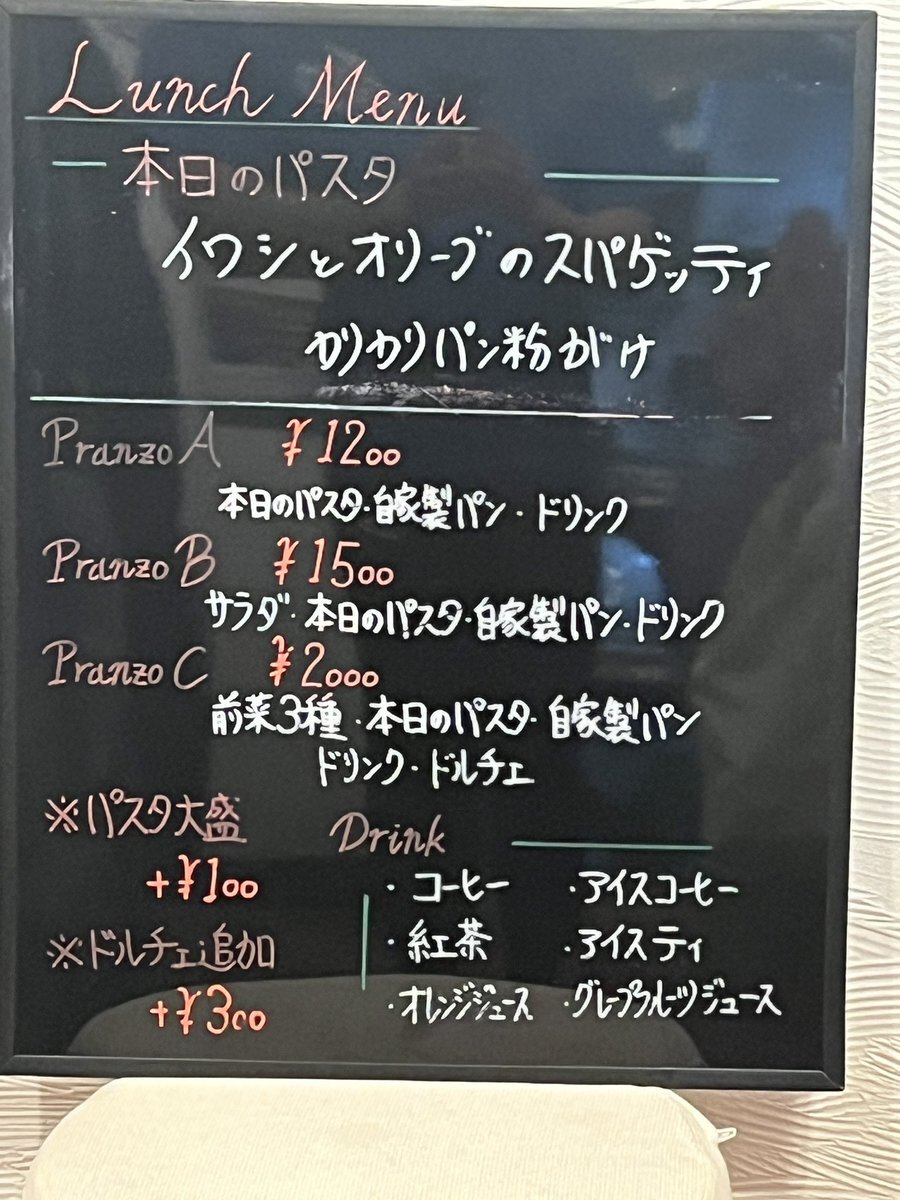 Lunch Menu
本日のパスタ
イワシとオリーブのスパゲッティ
カリカリパン粉がけ
Pranzo A ¥1200
本日のパスタ・自家製パン・ドリンク
Pranzo B ¥1500
サラダ・本日のパスタ・自家製パン・ドリンク
Pranzo C ¥2000
前菜3種・本日のパスタ・自家製パン
ドリンク・ドルチェ
※パスタ大盛
+¥100
※ドルチェ追加
+¥300
Drink
・コーヒー ・アイスコーヒー
・紅茶 ・アイスティ
・オレンジジュース ・グレープフルーツジュース